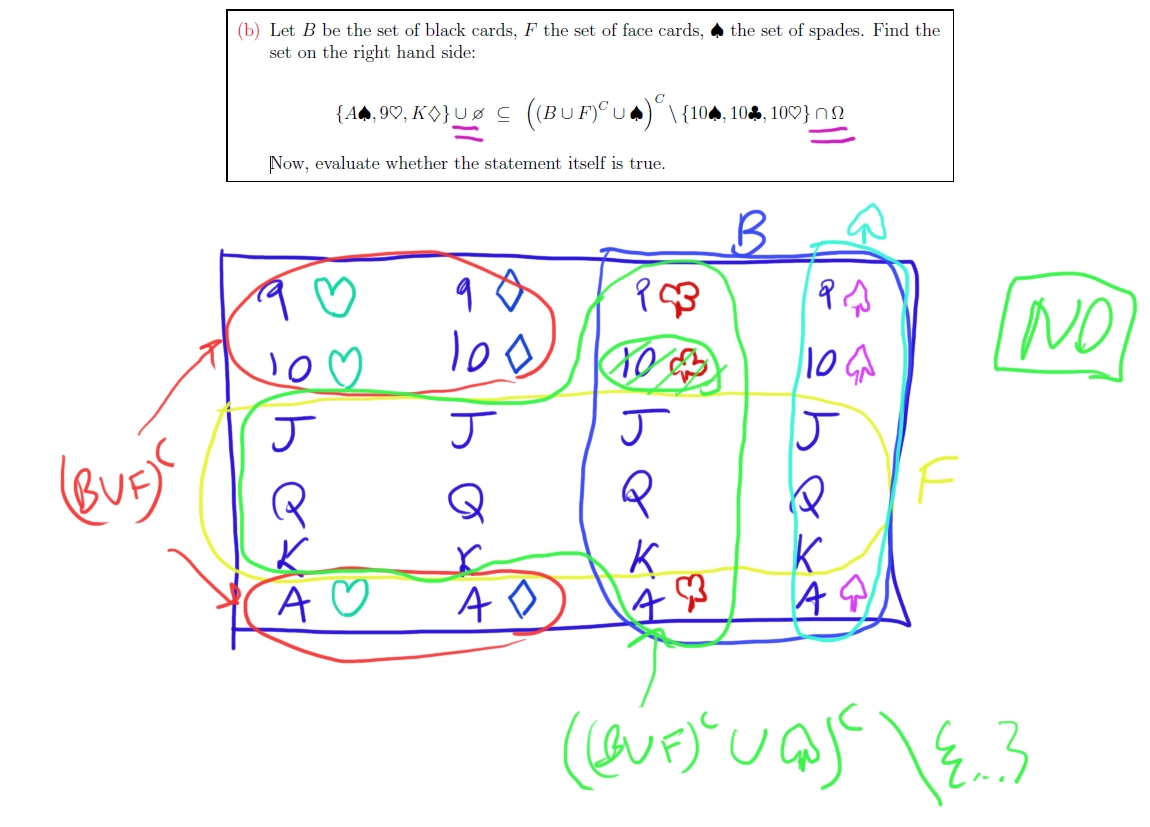 (b) Let B be the set of black cards, F the set of face cards, ♠ the set of spades. Find the
set on the right hand side:
{A♠, 9♡, K♢} ∪ ∅ ⊆ ((B ∪ F)^C ∪ ♠)^C \ {10♠, 10♣, 10♡} ∩ Ω
Now, evaluate whether the statement itself is true.
B ♤
9 ♡ 9 ♢ 9 ♧ 9 ♤
NO
10 ♡ 10 ♢ 10 ♧ 10 ♤
J J J J
(B∪F)^C
F
Q Q Q Q
K K K K
A ♡ A ♢ A ♧ A ♤
((B∪F)^C ∪ ♤)^C \ {...}